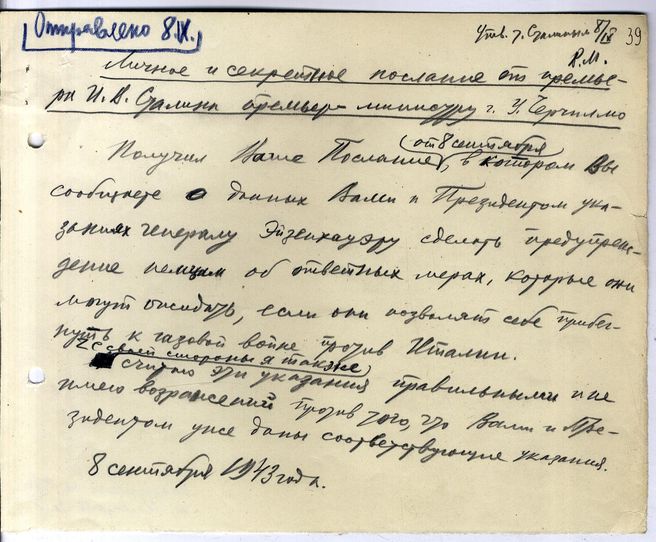 Отправлено 8.IX.
Утв. т. Сталиным 8/IX
39
В.М.
Личное и секретное послание от премье-
ра И.В. Сталина премьер-министру г. У. Черчиллю
(от 8 сентября)
Получил Ваше Послание, в котором Вы
сообщаете о данных Вами и Президентом ука-
заниях генералу Эйзенхауэру сделать предупреж-
дение немцам об ответных мерах, которые они
могут ожидать, если они позволят себе прибег-
нуть к газовой войне против Италии.
С своей стороны я также
считаю эти указания правильными и не
имею возражений против того, что Вами и Пре-
зидентом уже даны соответствующие указания.
8 сентября 1943 года.